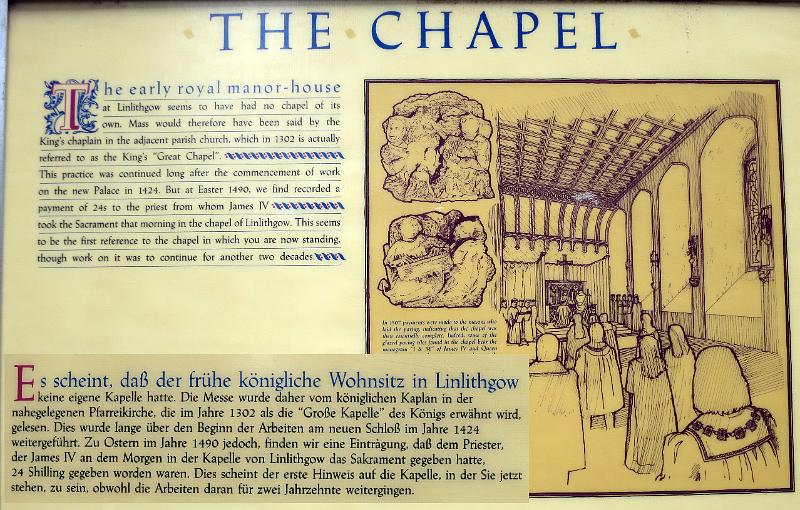 THE CHAPEL
The early royal manor-house
at Linlithgow seems to have had no chapel of its
own. Mass would therefore have been said by the
King's chaplain in the adjacent parish church, which in 1302 is actually
referred to as the King's "Great Chapel".
This practice was continued long after the commencement of work
on the new Palace in 1424. But at Easter 1490, we find recorded a
payment of 24s to the priest from whom James IV
took the Sacrament that morning in the chapel of Linlithgow. This seems
to be the first reference to the chapel in which you are now standing,
though work on it was to continue for another two decades.
In 1507 payments were made to the masons who
laid the paving, indicating that the chapel was
then essentially complete. Indeed, some of the
glazed paving tiles found in the chapel bear the
monogram "I & M" of James IV and Queen
Es scheint, daß der frühe königliche Wohnsitz in Linlithgow
keine eigene Kapelle hatte. Die Messe wurde daher vom königlichen Kaplan in der
nahegelegenen Pfarreikirche, die im Jahre 1302 als die "Große Kapelle" des Königs erwähnt wird,
gelesen. Dies wurde lange über den Beginn der Arbeiten am neuen Schloß im Jahre 1424
weitergeführt. Zu Ostern im Jahre 1490 jedoch, finden wir eine Eintragung, daß dem Priester,
der James IV an dem Morgen in der Kapelle von Linlithgow das Sakrament gegeben hatte,
24 Shilling gegeben worden waren. Dies scheint der erste Hinweis auf die Kapelle, in der Sie jetzt
stehen, zu sein, obwohl die Arbeiten daran für zwei Jahrzehnte weitergingen.